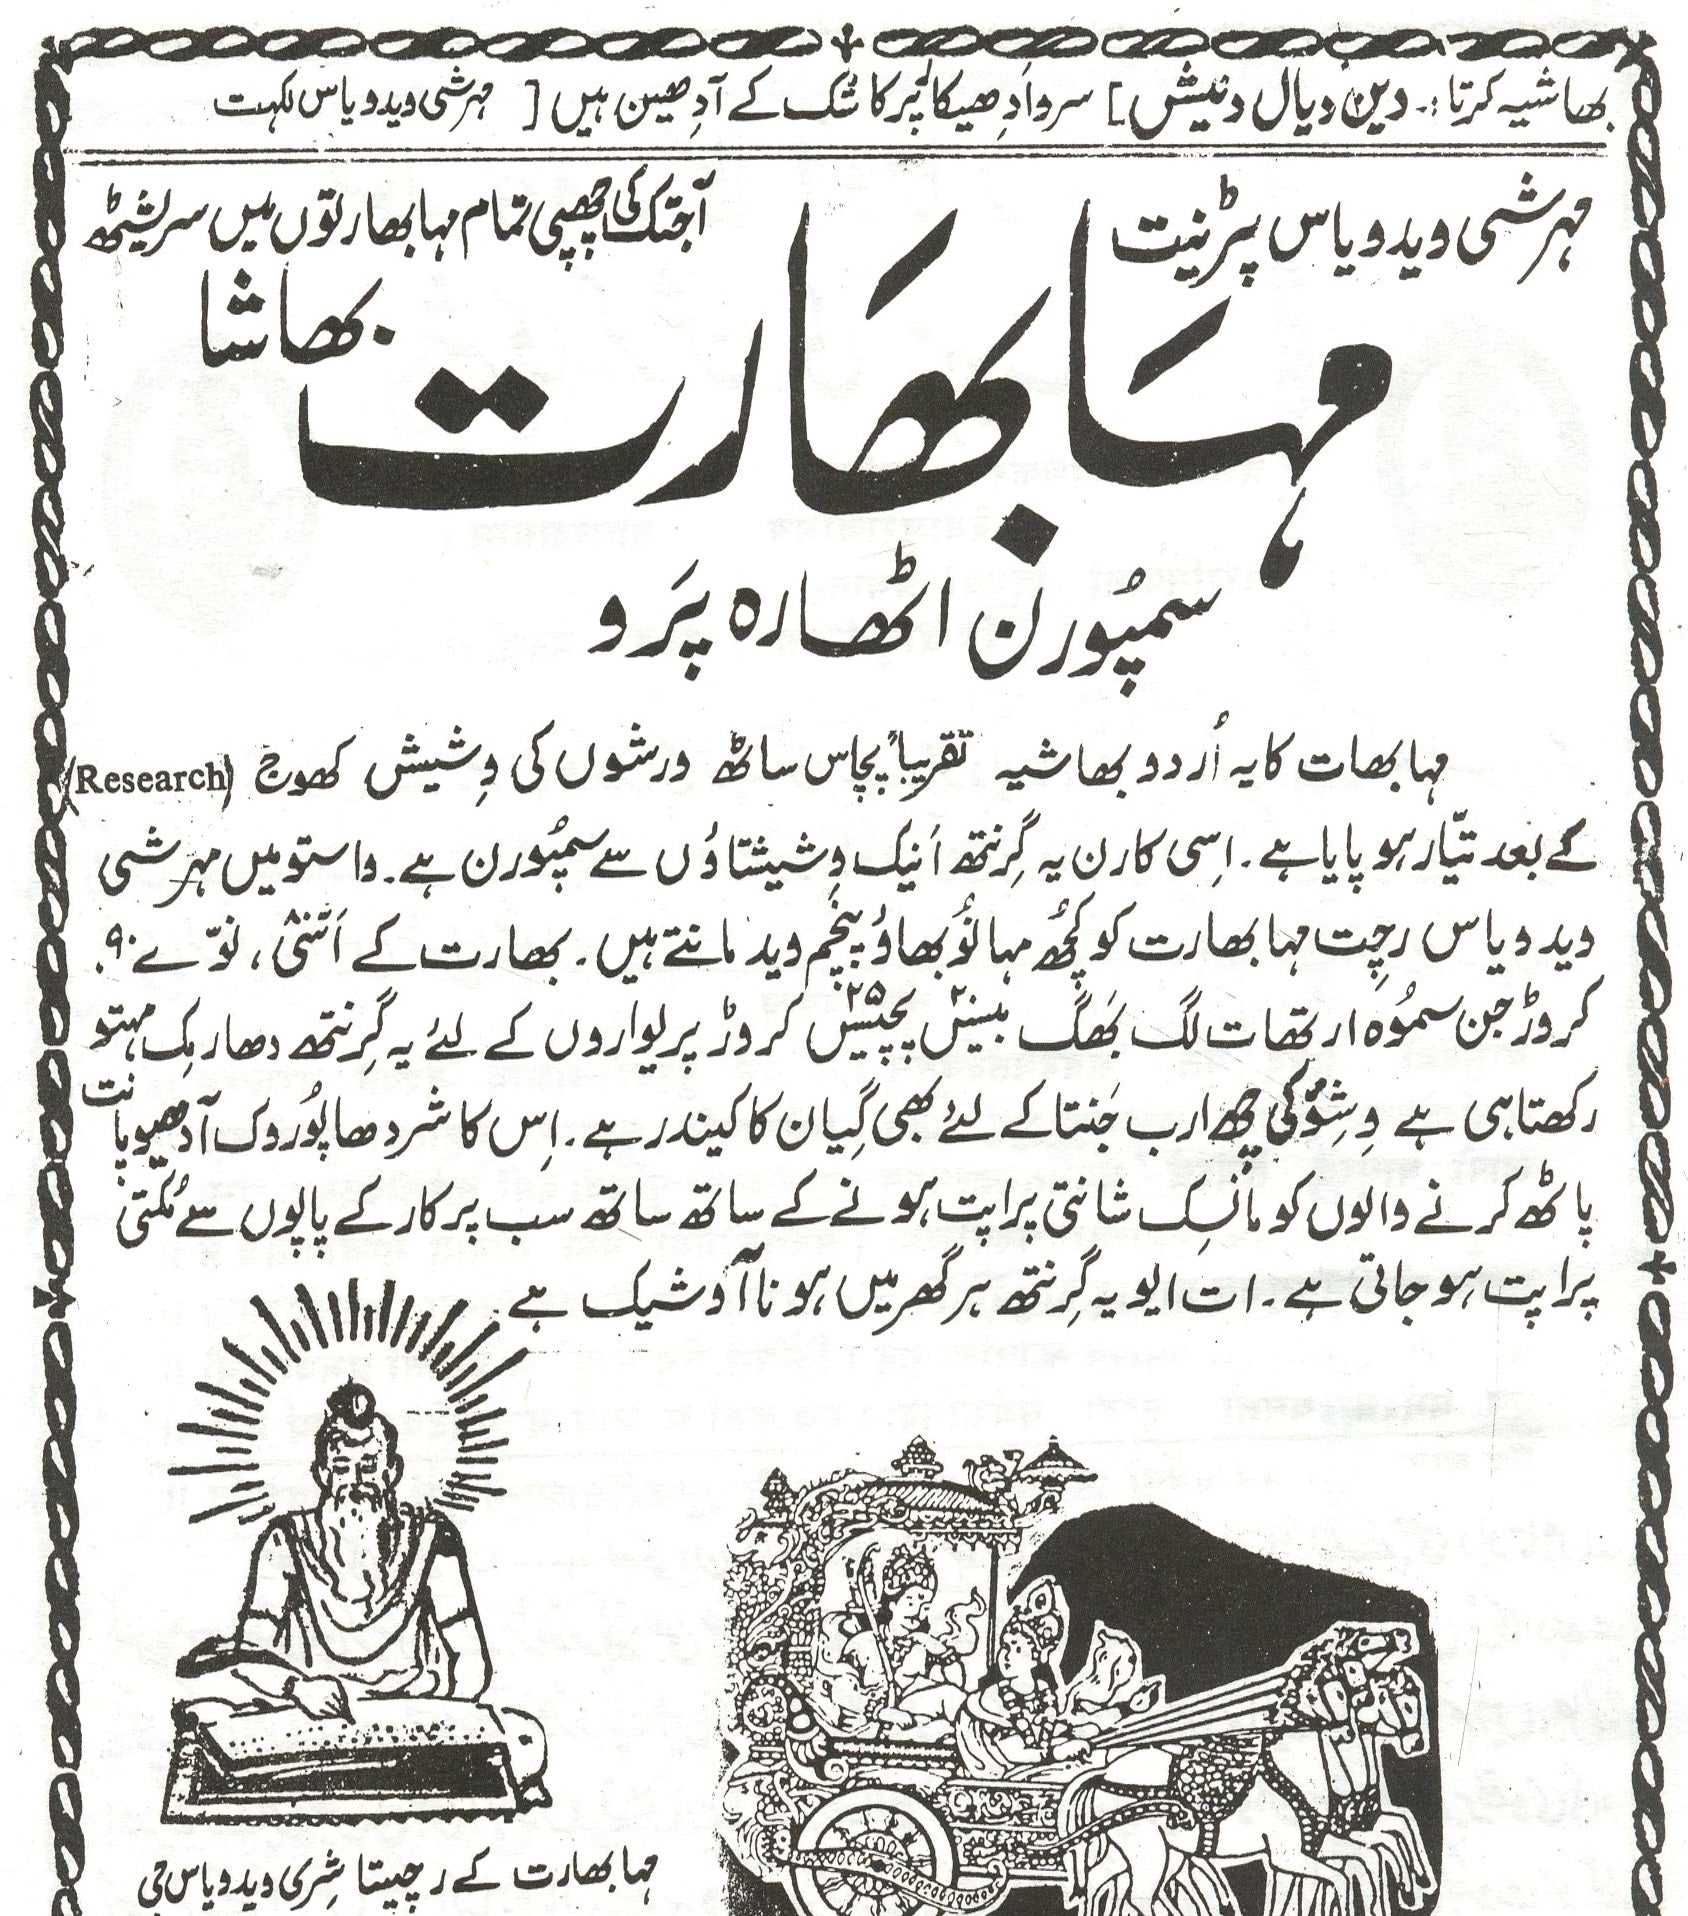 بھاشیہ کرتا:۔ دین دیال دنیش] سروادِھیکار پرکاشک کے آدِھین ہیں [ مہرشی وید ویاس لکہت
مہرشی وید ویاس پرنیت
آجتک کی چھپی تمام مہابھارتوں میں سریشٹھ
مہَابھَارت
بھاشا
سمپُورن اٹھارہ پَرو
مہابھات کا یہ اُردو بھاشیہ تقریباً پچاس ساٹھ ورشوں کی وِشیش کھوج (Research)
کے بعد تیّار ہو پایا ہے۔ اِسی کارن یہ گِرنتھ اَنیک وِشیشتاؤں سے سمپُورن ہے۔ واستو میں مہرشی
وید ویاس رچِت مہابھارت کو کچُھ مہانُوبھاوُ پنَچم وید مانتے ہیں۔ بھارت کے اَسّی ۸۰، نوّے ۹۰
کروڑ جن سموُہ ارتھات لگ بَھگ بیس ۲۰ پچیس ۲۵ کروڑ پریواروں کے لئے یہ گِرنتھ دھارمِک مہتو
رکھتا ہی ہے وِشِو کی چھ ۶ ارب جَنتا کے لئے بھی گِیان کا کیندر ہے۔ اِس کا شردھاپُوروک آدھیوپانت
پاٹھ کرنے والوں کو مانسِک شانتی پراپت ہونے کے ساتھ ساتھ سب پرکار کے پاپوں سے مُکتی
پراپت ہو جاتی ہے۔ ات ایو یہ گِرنتھ ہر گھر میں ہونا آوشیک ہے
مہابھارت کے رچیتا شِری وید ویاس جی